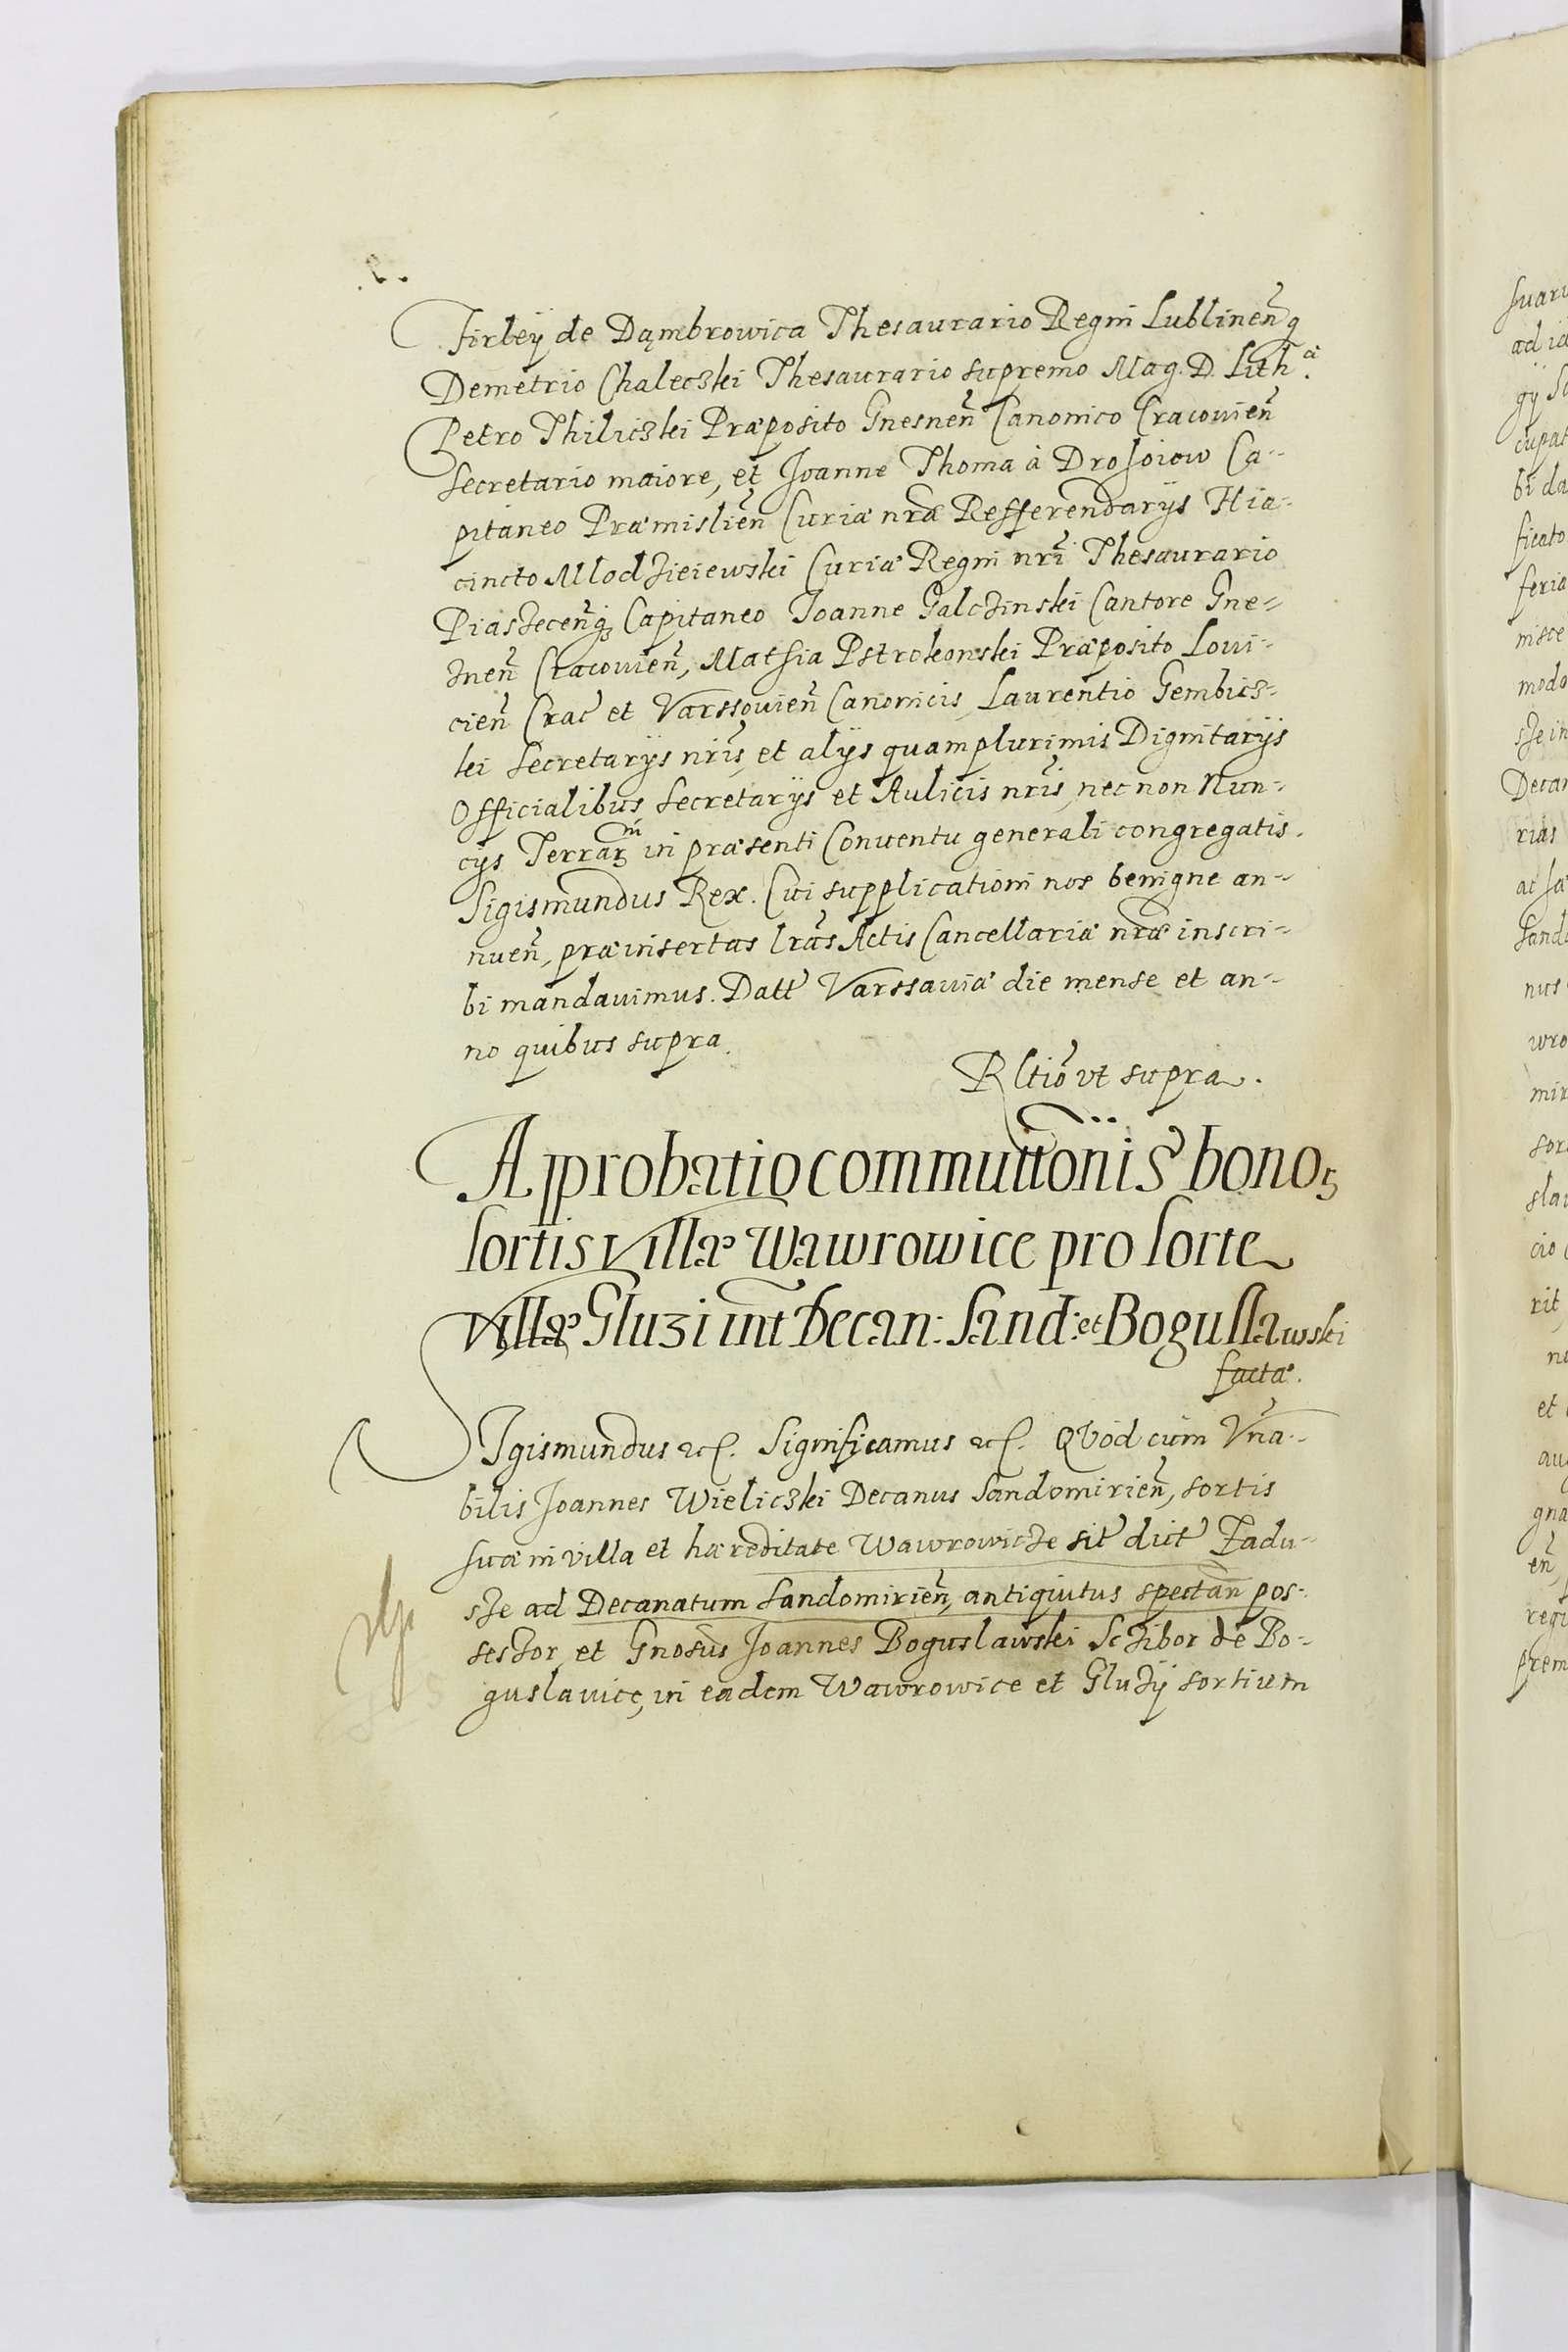 Firleÿ de Dąmbrowica Thesaurario Regni Lublinen̄q
Demetrio Chaleczki Thesaurario supremo Mag. D. Lithᵃ.
Petro Thiliczki Præposito Gnesnen̄ Canonico Cracovien̄
Secretario maiore, et Joanne Thoma à Drojoiow Ca-
pitaneo Præmislien̄ Curiæ nrǣ Refferendarijs Hia-
cincto Mlodzieiewski Curiæ Regni nrī Thesaurario
Piaszecen̄q Capitaneo Joanne Galczinski Cantore Gne-
znen̄ Cracouien̄, Mathia Pstrokonski Præposito Loui-
cien̄ Crac̄ et Varssouien̄ Canonicis, Laurentio Gembicz-
ki Secretarijs nrīs, et alijs quamplurimis Dignitarijs
Officialibus Secretarijs et Aulicis nrīs, nec non Nun-
cijs Terrarᵐ in præsenti Conuentu generali congregatis.
Sigismundus Rex. Cui supplicationi nos benigne an-
nuen̄, præinsertas lrās Actis Cancellariæ nrǣ inscri-
bi mandauimus. Datt̄ Varssauiæ die mense et an-
no quibus supra.
Rltiō vt supra.
Approbatio commuttōnis bonoꝝ
sortis villæ Wawrowice pro sorte
villæ Gluzi int̄ Decan: Sand: et Boguslawski
factæ.
SIgismundus etc. Significamus etc. Quod cùm Vn̄a-
bilis Joannes Wieliczki Decanus Sandomirien̄, sortis
suæ in villa et hæreditate Wawrowicze sit̄ dict̄ Zadu-
sze ad Decanatum Sandomirien̄, antiquitus spectan̄ pos-
sessor, et Gnosus̄ Joannes Boguslawski Sczibor de Bo-
guslavice, in eadem Wawrowice et Gluzÿ sortium